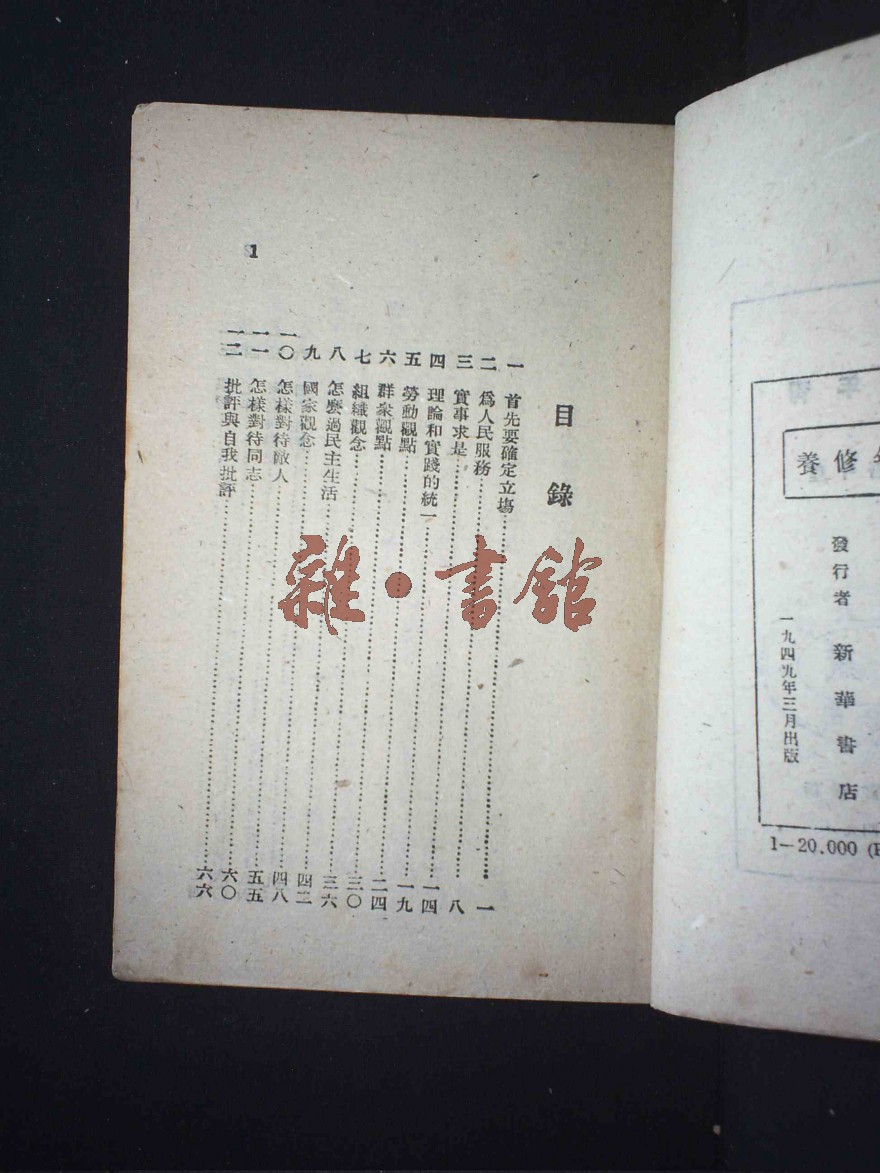 修養
發行者 新華書店
一九四九年三月出版
1—20.000
目錄
一 首先要確定立場……一
二 爲人民服務……八
三 實事求是……一四
四 理論和實踐的統一……一九
五 勞動觀點……二四
六 群衆觀點……三〇
七 組織觀念……三六
八 怎麼過民主生活……四二
九 國家觀念……四八
一〇 怎樣對待敵人……五五
一一 怎樣對待同志……六〇
一二 批評與自我批評……六六
1
雜·書館